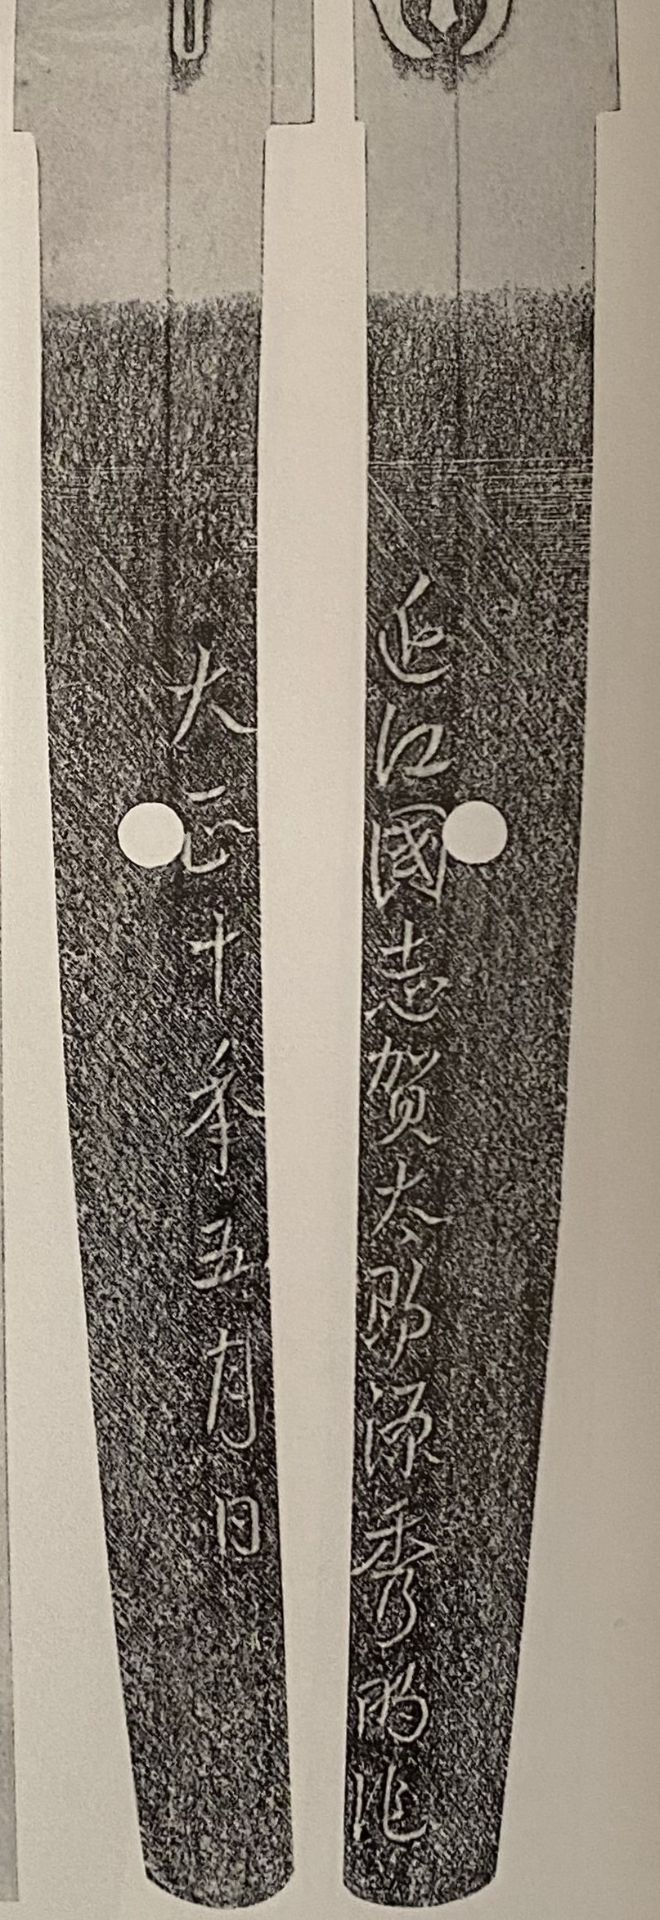 近江國志賀太郎源秀明作
大正十年五月日